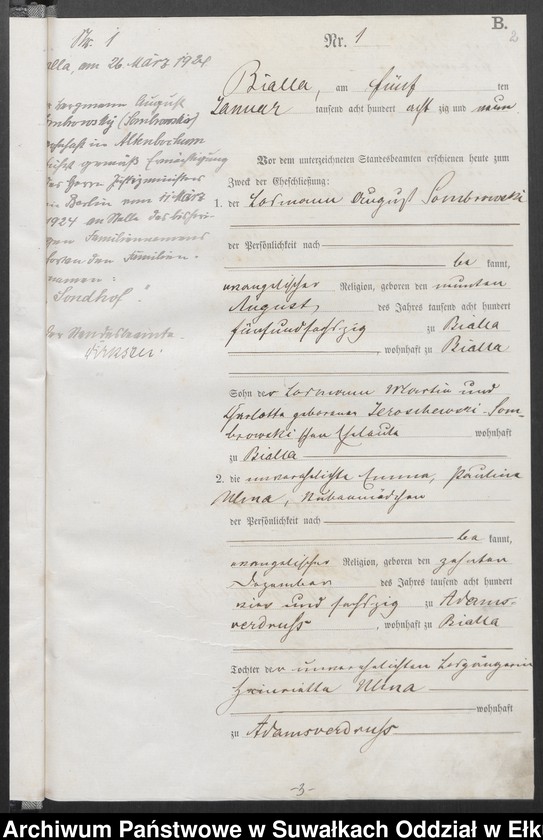 B.
2
Nr. 1
Bialla, am fünf ten
Januar tausend acht hundert acht zig und neun
Vor dem unterzeichneten Standesbeamten erschienen heute zum
Zweck der Eheschließung:
1. der Losmann August Sombrowski
der Persönlichkeit nach
be kannt,
evangelischer Religion, geboren den neunten
August des Jahres tausend acht hundert
fünfundsechszig zu Bialla
, wohnhaft zu Bialla
Sohn der Losmann Martin und
Charlotte geborenen Jeroschewski-Som-
browski'schen Eheleute wohnhaft
zu Bialla
2. die unverehelichte Emma, Pauline
Ulma,
der Persönlichkeit nach
be kannt,
evangelischer Religion, geboren den zehnten
Dezember des Jahres tausend acht hundert
vier und sechszig zu Adams-
verdruss, wohnhaft zu Bialla
Tochter der unverehelichten Losgängerin
Heinriette Ulma
wohnhaft
zu Adamsverdruss
-3-
Nr. 1
alla, am 26 März 1924
Bergmann August
mbrowsky (Sombrowski)
in Altenbochum
führt gemäß Ermächtigung
des Herrn Justizministers
in Berlin vom 11 März
1924 an Stelle des bisheri-
gen Familiennamens
den Familien-
namen:
"Sondhof".
Der Standesbeamte.
Archiwum Państwowe w Suwałkach Oddział w Ełk